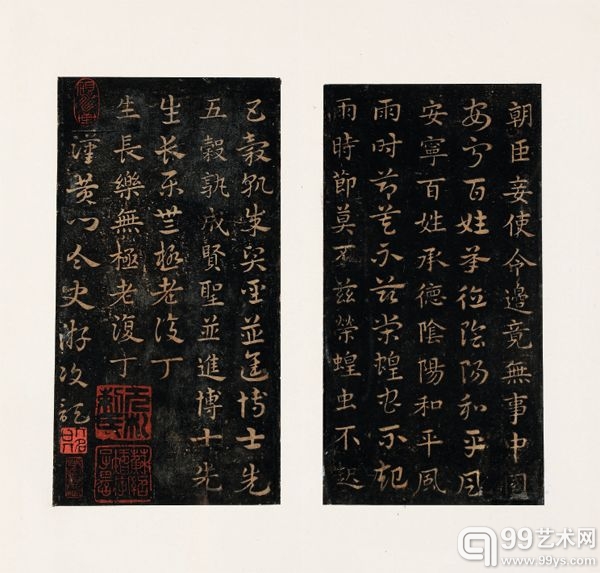 朝臣妾使令邊竟無事中國
安寧百姓承德陰陽和平風
安寧百姓承德陰陽和平風
雨時節莫不茲榮蝗虫不起
雨時節莫不茲榮蝗虫不起
五穀孰成賢聖並進博士先
五穀孰成賢聖並進博士先
生長樂無極老復丁
生長樂無極老復丁
漢黃門令史游
99艺术网
www.99ys.com